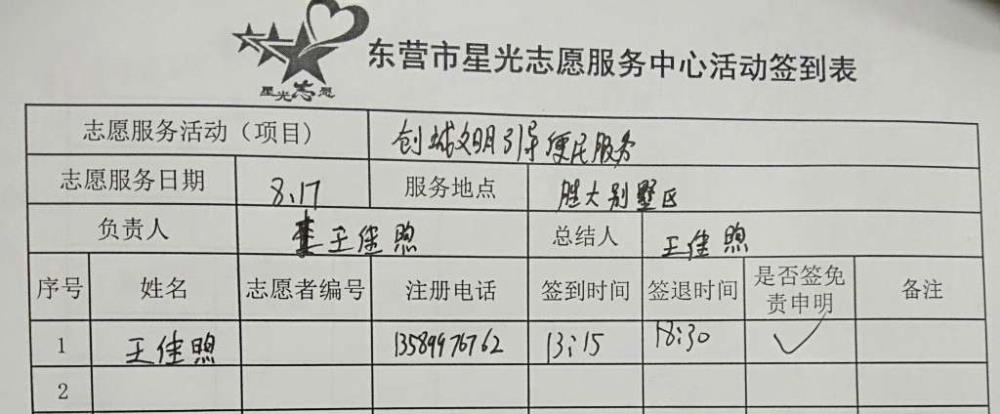 星光志愿
东营市星光志愿服务中心活动签到表
志愿服务活动（项目） 创城文明引导便民服务
志愿服务日期 8.17 服务地点 胜大别墅区
负责人 王佳煦 总结人 王佳煦
序号 姓名 志愿者编号 注册电话 签到时间 签退时间 是否签免责申明 备注
1 王佳煦 13589976762 13:15 18:30 ✓
2